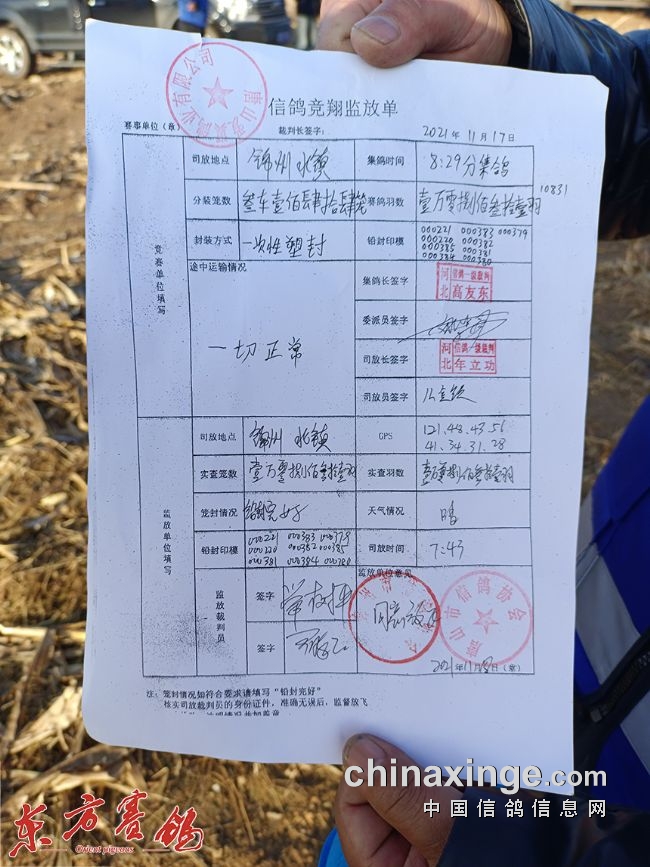 信鸽竞翔监放单
赛事单位（章） 裁判长签字： 2021年11月17日
竞赛单位填写
司放地点 锦州 北镇 集鸽时间 8:29分集鸽
分装笼数 叁车壹佰肆拾肆笼 赛鸽羽数 壹万零捌佰叁拾壹羽 10831
封装方式 一次性塑封 铅封印模 000221 000383 000379
000220 000382
000385 000381
000384 000380
途中运输情况 一切正常
集鸽长签字 河北 信鸽一级裁判 高友东
委派员签字
司放长签字 河北 信鸽一级裁判 年立功
司放员签字
监放单位填写
司放地点 锦州 北镇 GPS 121.48.43.56
41.34.31.28
实查笼数 壹万零捌佰叁拾壹羽 实查羽数 壹万零捌佰叁拾壹羽
笼封情况 铅封完好 天气情况 晴
铅封印模 000221 000383 000378
000220 000382 000385
000381 000384 000380
司放时间 7:43
监放裁判员
签字
签字
监放单位意见
同意放飞
唐山市信鸽协会
2021年11月18日（章）
注：笼封情况如符合要求请填写“铅封完好”
核实司放裁判员的身份证件，准确无误后，监督放飞
chinaxinge.com
中国信鸽信息网
东方赛鸽
Orient pigeons